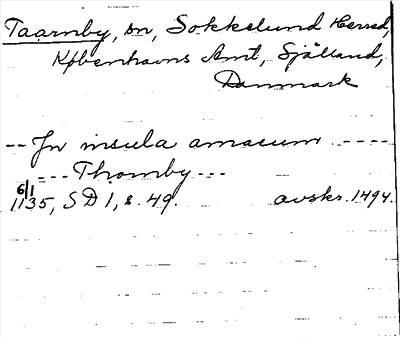 Taarnby, sn, Sokkelund Herred,
Københavns Amt, Själland,
Danmark
-- Jn insula amacum ----
--- Thornby ---
6/1
1135, SD 1, s. 49. avskr. 1494.